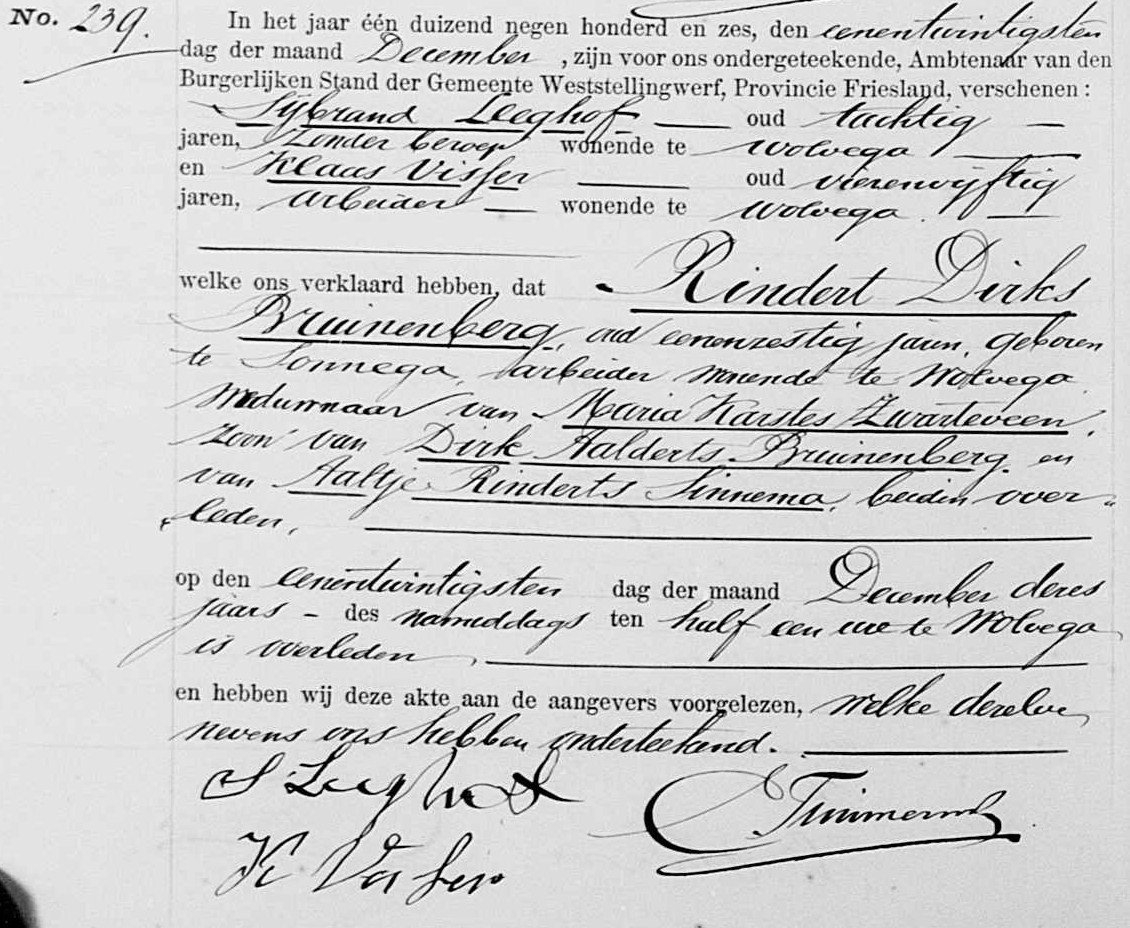 No. 239.
In het jaar één duizend negen honderd en zes, den eenentwintigsten
dag der maand December , zijn voor ons ondergeteekende, Ambtenaar van den
Burgerlijken Stand der Gemeente Weststellingwerf, Provincie Friesland, verschenen :
Sijbrand Leeghof oud tachtig
jaren, zonder beroep wonende te Wolvega
en Klaas Visser oud vierenvijftig
jaren, arbeider wonende te Wolvega.
welke ons verklaard hebben, dat Rindert Dirks
Bruinenberg, oud eenenzestig jaren, geboren
te Sonnega, arbeider wonende te Wolvega,
weduwnaar van Maria Karstes Zwarteveen,
zoon van Dirk Aalderts Bruinenberg en
van Aaltje Rinderts Sinnema, beiden over-
leden,
op den eenentwintigsten dag der maand December dezes
jaars - des namiddags ten half een ure te Wolvega
is overleden,
en hebben wij deze akte aan de aangevers voorgelezen, welke dezelve
nevens ons hebben onderteekend.
S Leeghof
K Visser